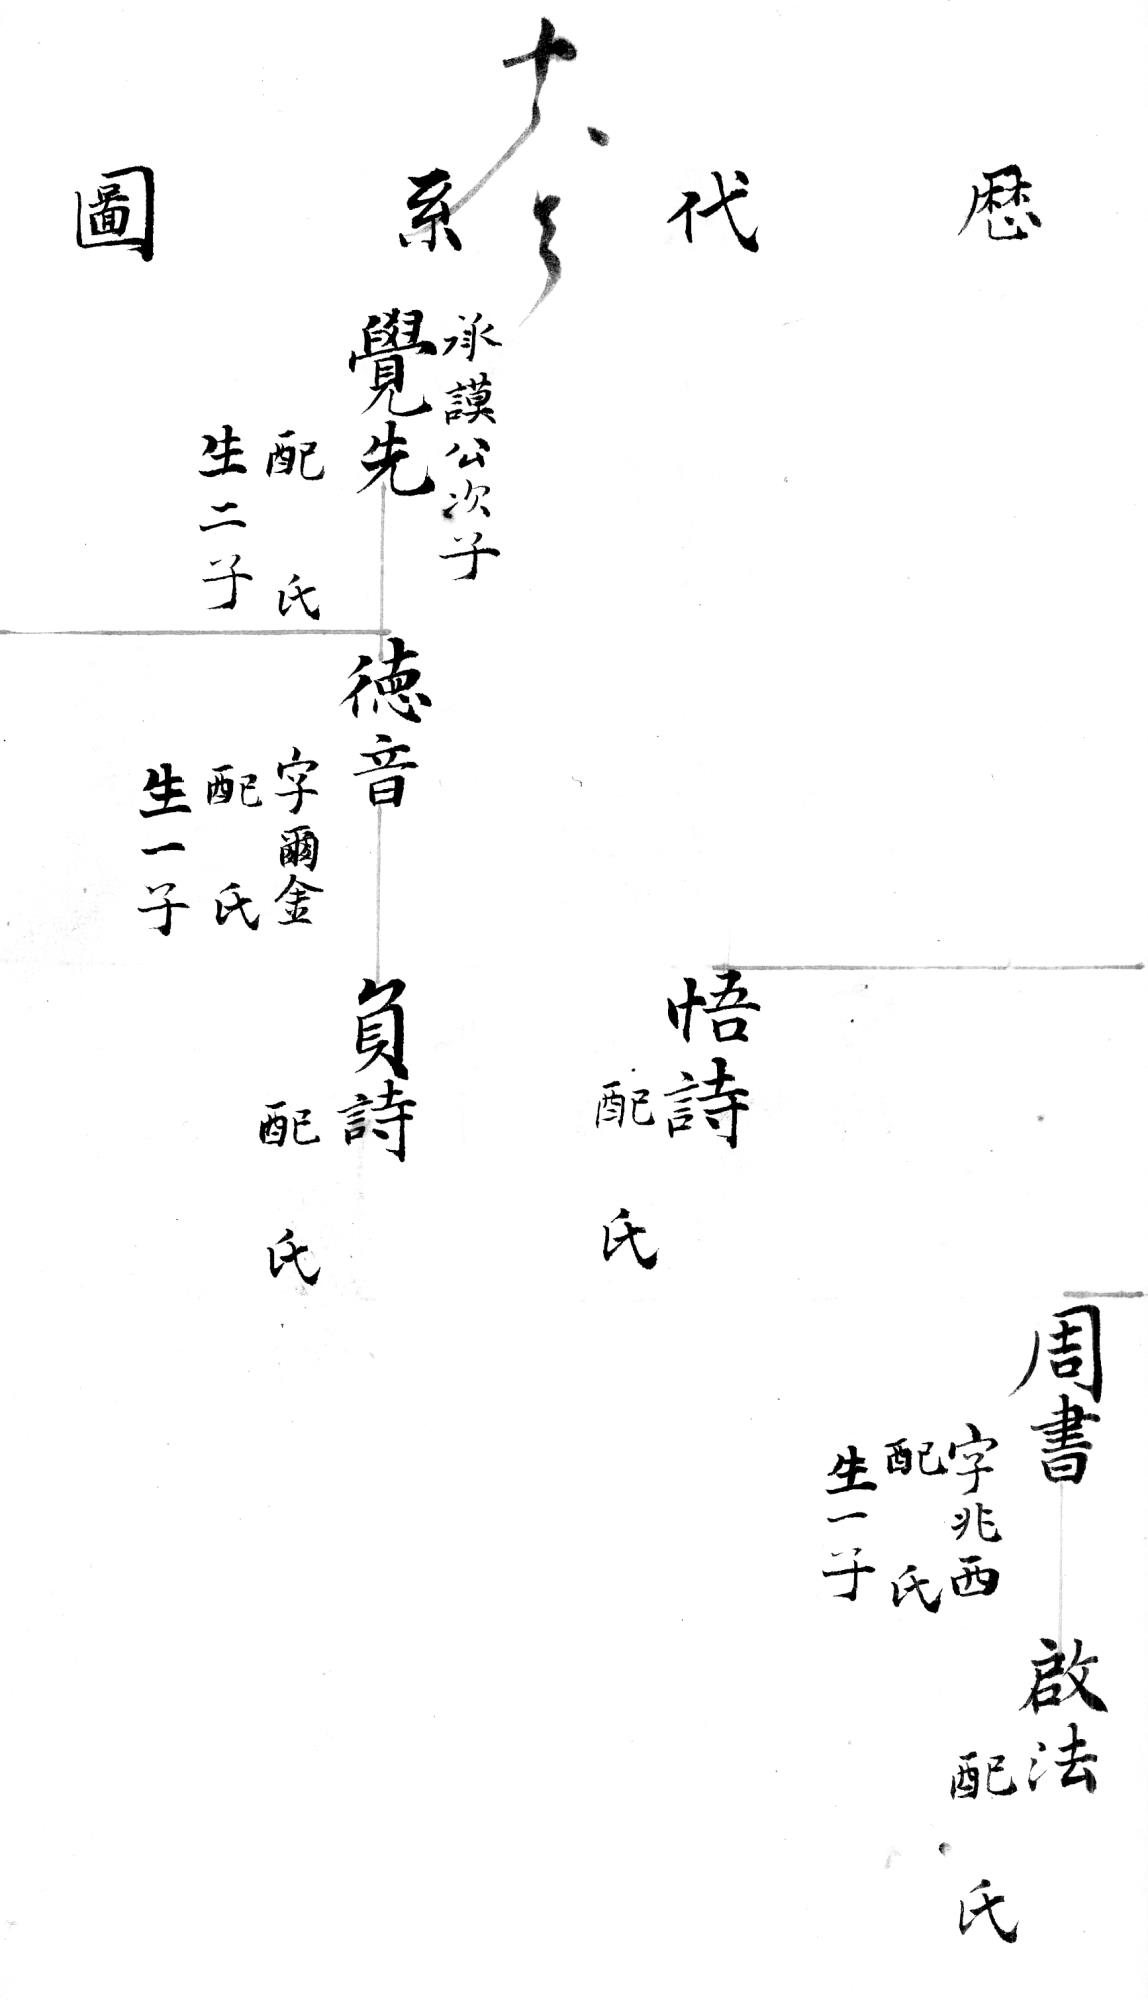 歴代系圖
周書
字兆西
配 氏
生一子
啟法
配 氏
悟詩
配 氏
承謨公次子
覺先
配 氏
生二子
德音
字爾金
配 氏
生一子
負詩
配 氏